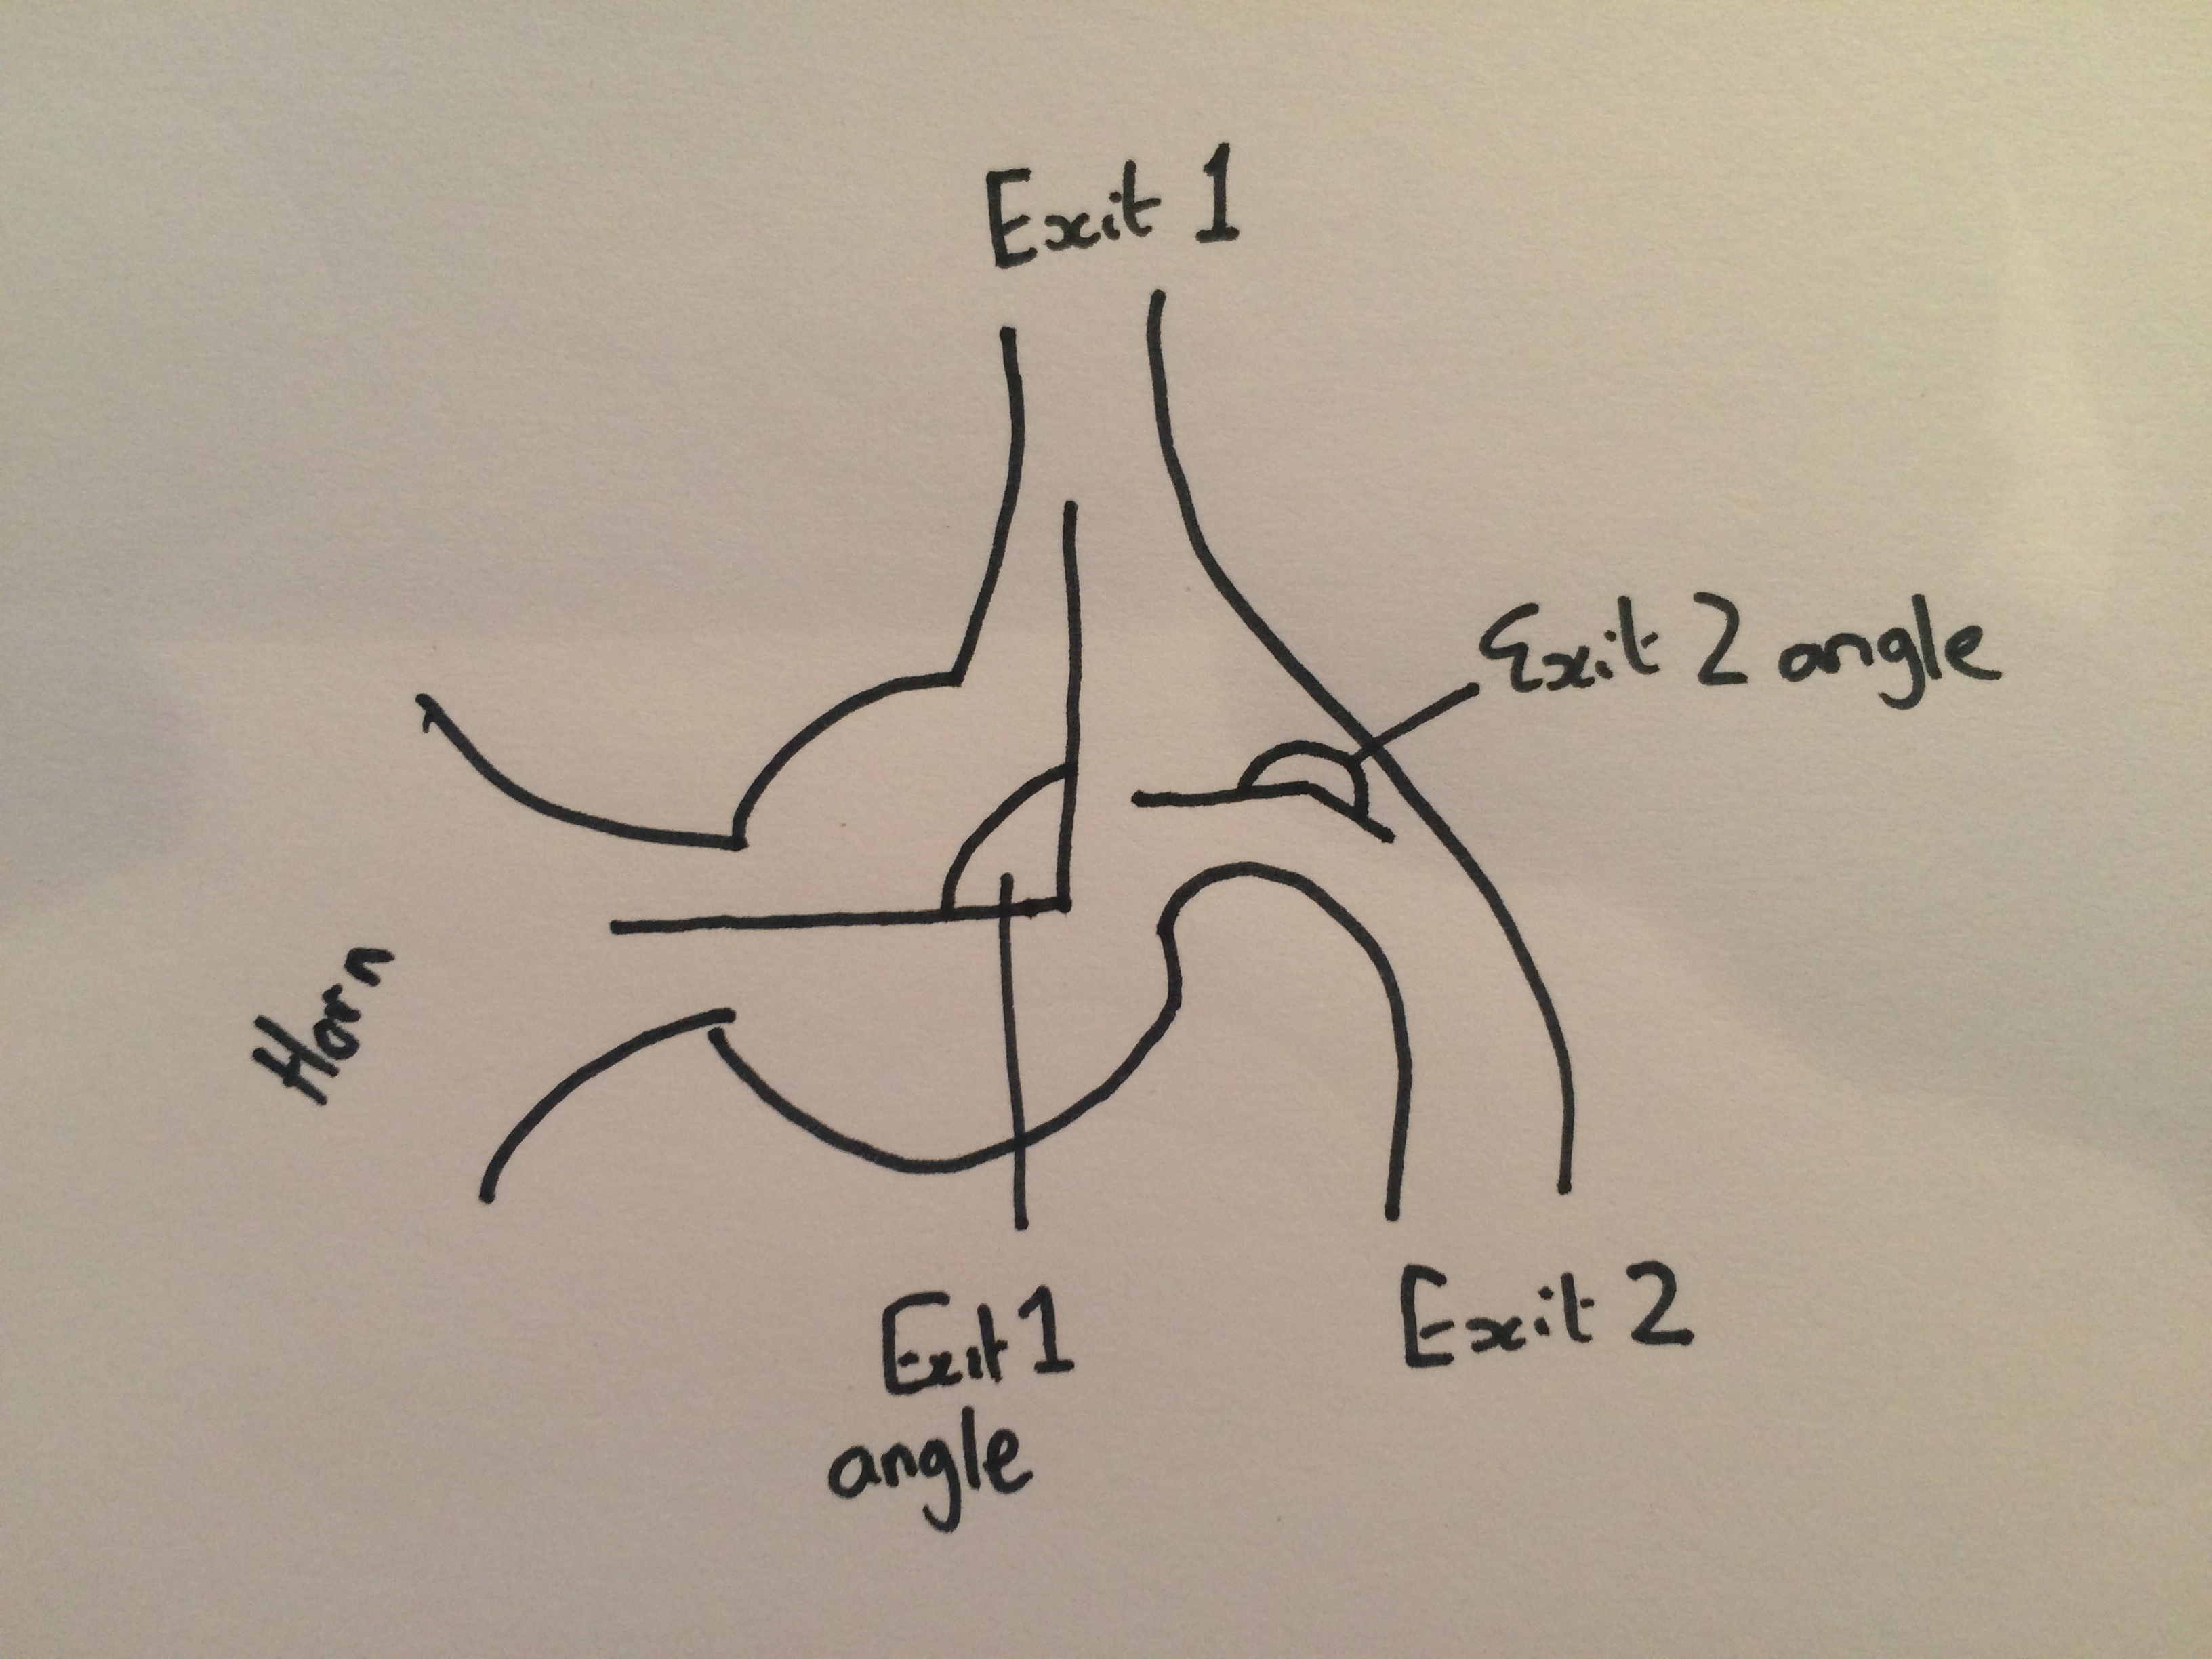 Exit 1
Exit 2 angle
Horn
Exit 1
angle
Exit 2